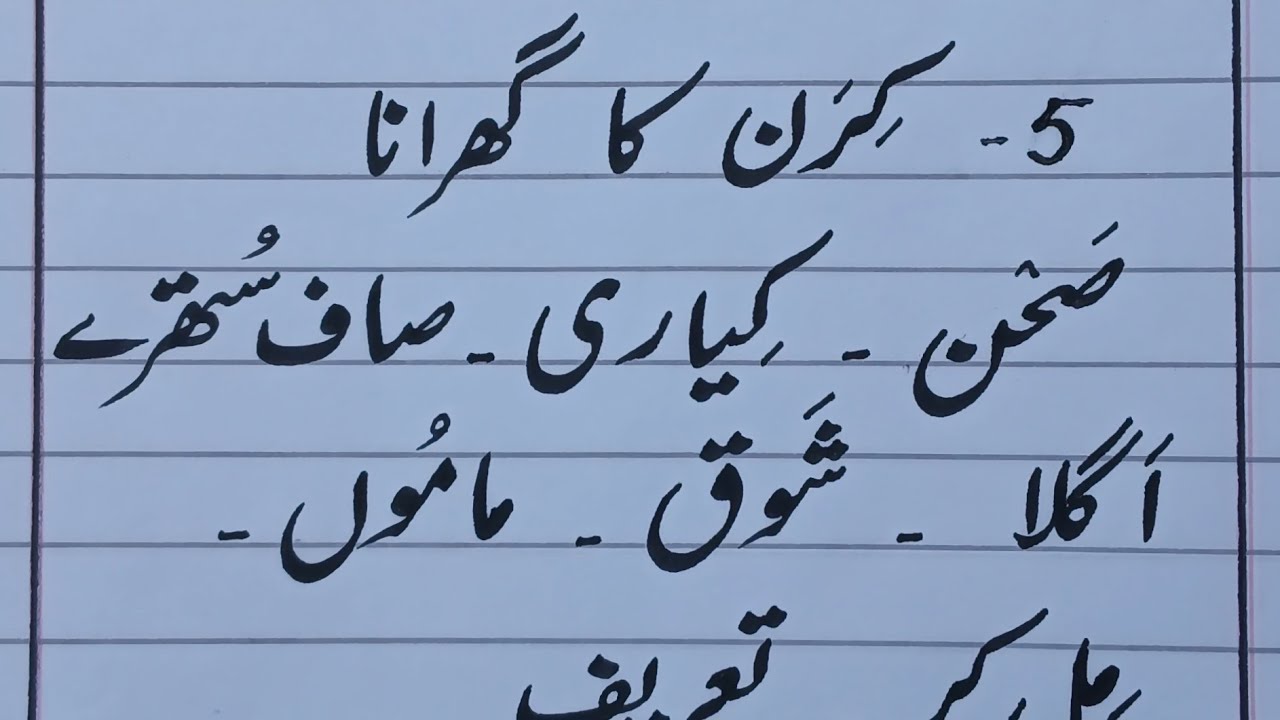 5- کِرَن کا گھرانا
صَحْن - کِیاری - صاف سُتھرے
اَگلا - شَوق - مامُوں -
مِل کر تعریف